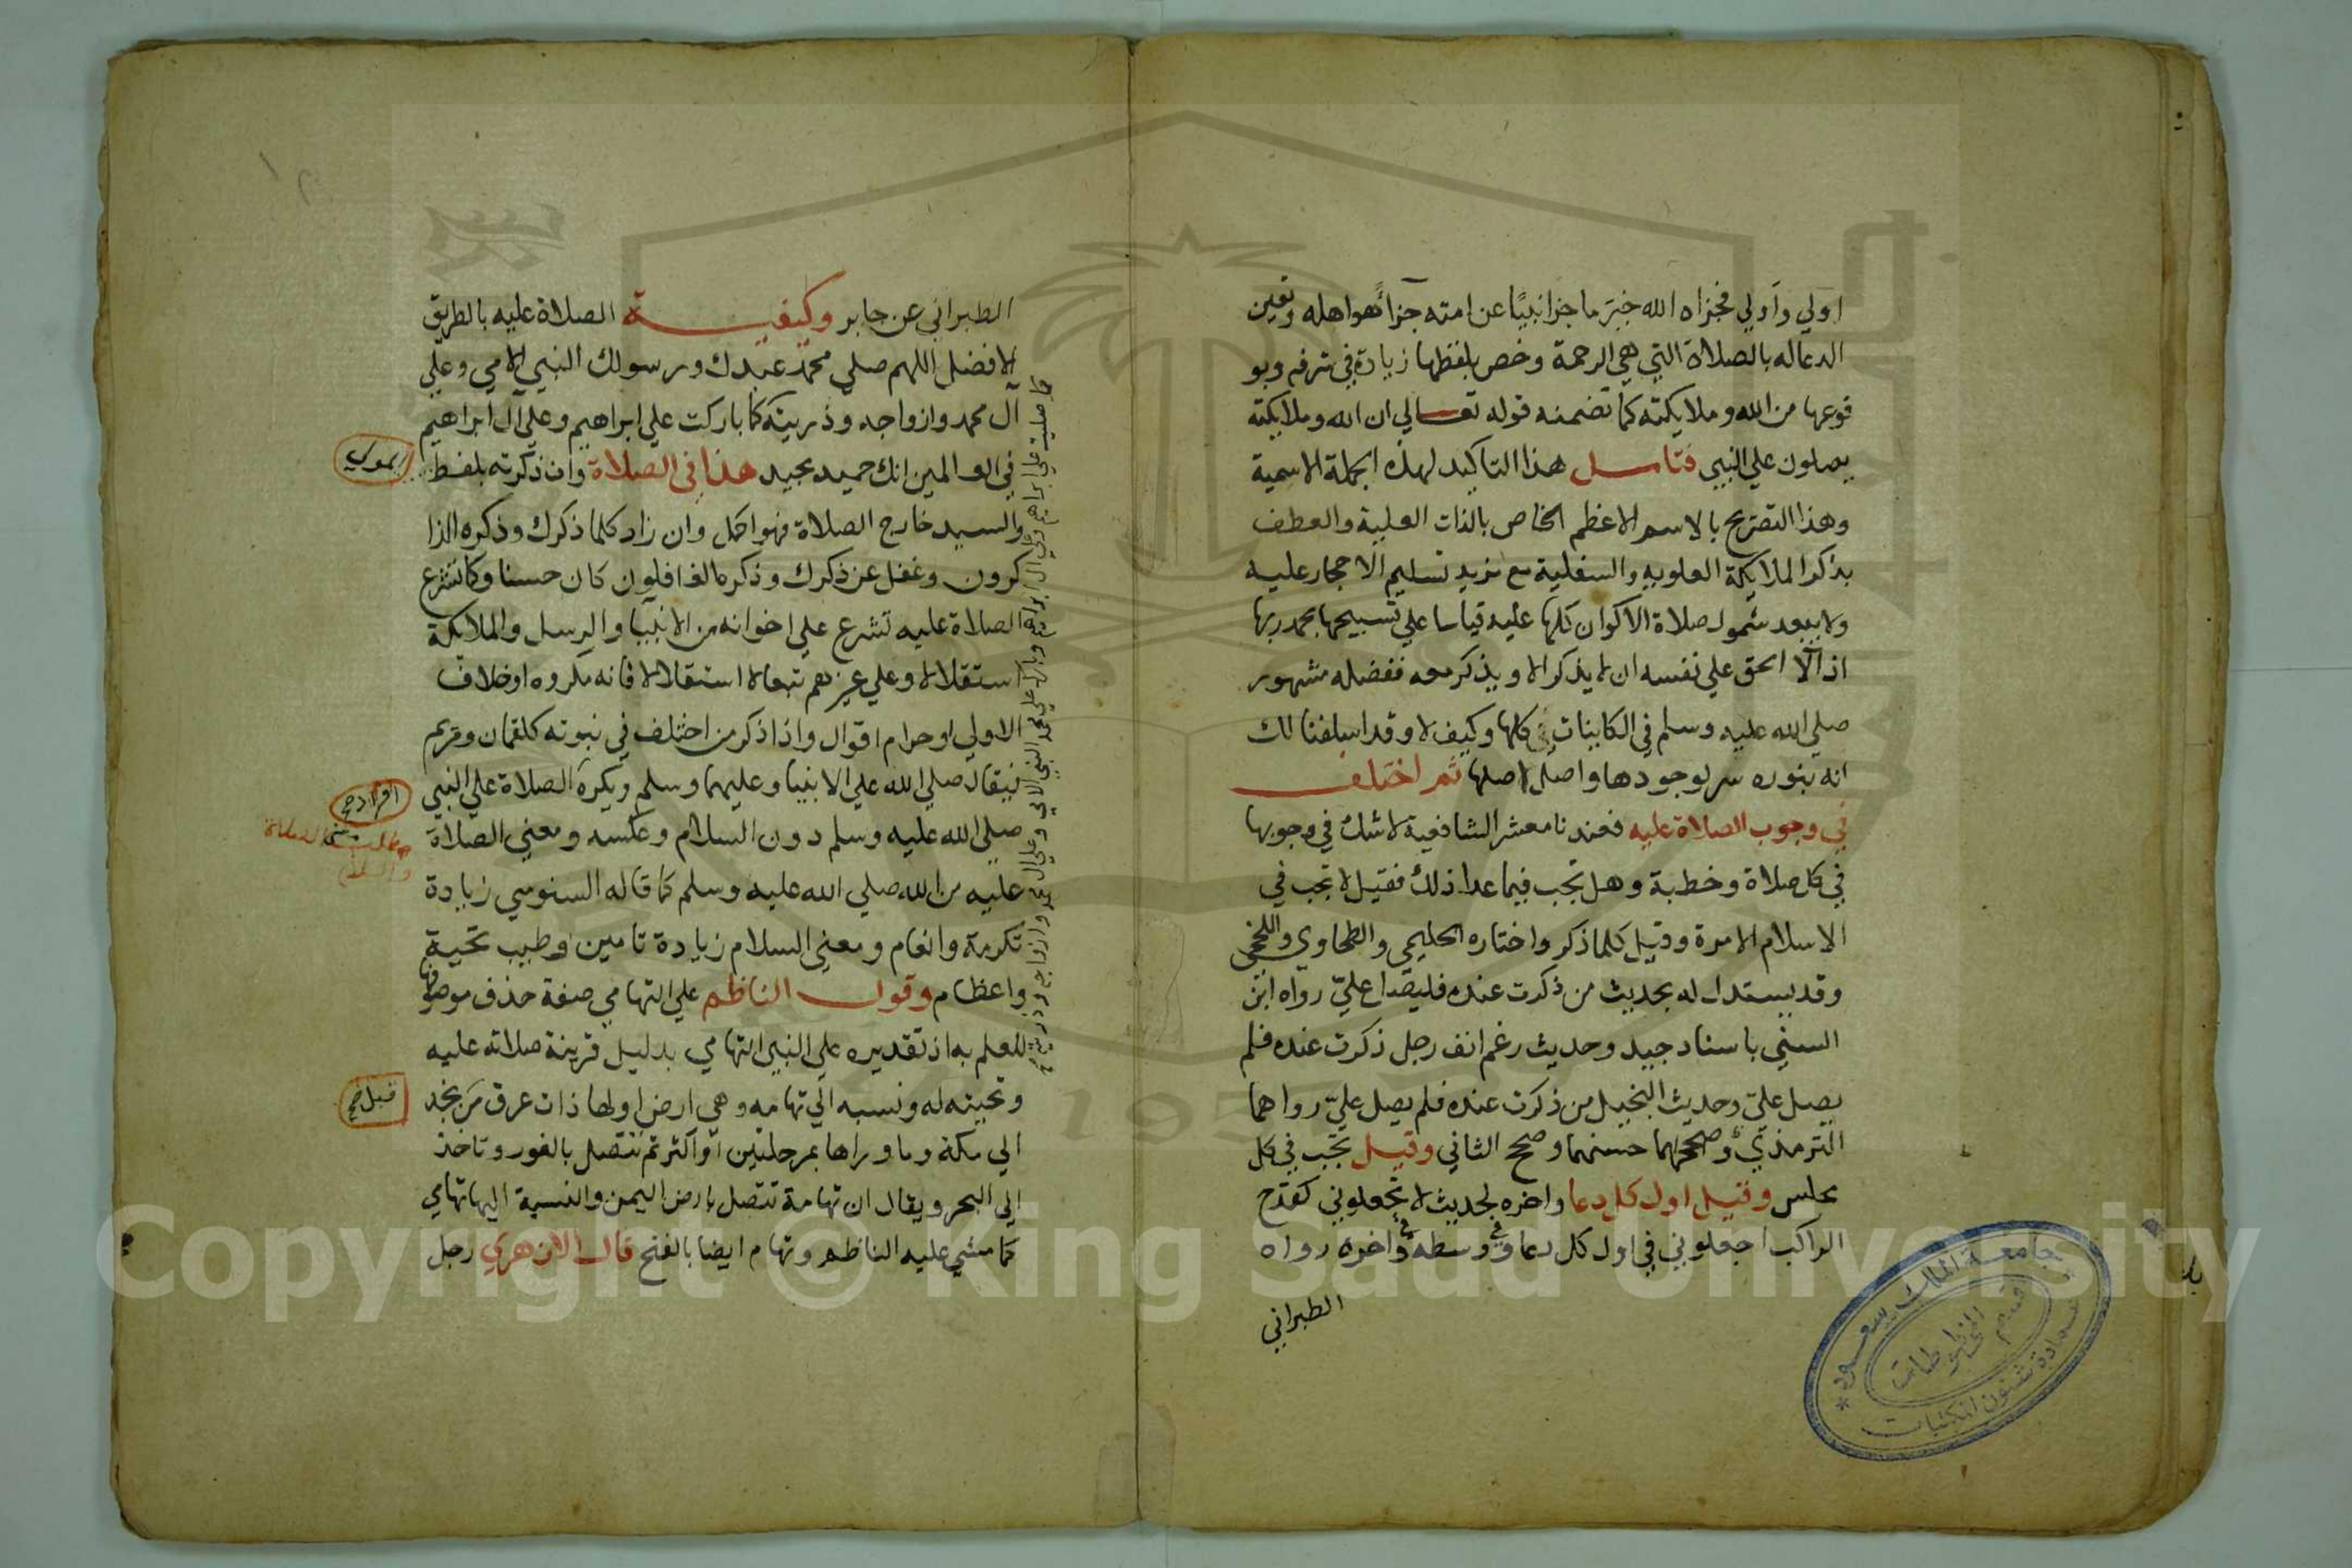 اولي واولي فجزاه الله خير ما جزا نبيًا عن امته جزاءً هو اهله وتعين
الدعا له بالصلاة التي هي الرحمة وخص بلفظها زيادة في شرفه وبو
قوعها من الله وملايكته كما تضمنه قوله تعالي ان الله وملايكته
يصلون علي النبي فتامل هذا التاكيد لهذه الجملة الاسمية
وهذا التصريح بالاسم الاعظم الخاص بالذات العلية والعطف
بذكر الملايكة العلويه والسفلية مع مزيد تسليم الاحجار عليه
ولا يبعد شمول صلاة الاكوان كلها عليه قياسا علي تسبيحها بحمد ربها
اذ آلا الحق علي نفسه ان لا يذكر الا ويذكر معه ففضله مشهور
صلي الله عليه وسلم في الكاينات كلها وكيف لا وقد اسلفنا لك
انه بنوره سر لوجودها واصل اصلها ثم اختلف
في وجوب الصلاة عليه فعندنا معشر الشافعية لا شك في وجوبها
في كل صلاة وخطبة وهل تجب فيما عدا ذلك فقيل لا تجب في
الاسلام الا مرة وقيل كلما ذكر واختاره الحليمي والطحاوي واللخمي
وقد يستدل له بحديث من ذكرت عنده فليصل عليّ رواه ابن
السني باسناد جيد وحديث رغم انف رجل ذكرت عنده فلم
يصل عليّ وحديث البخيل من ذكرت عنده فلم يصل عليّ رواهما
الترمذي وصححهما حسنهما وصحح الثاني وقيل تجب في كل
مجلس وقيل اول كل دعا واخره لحديث لا تجعلوني كقدح
الراكب اجعلوني في اول كل دعا وفي وسطه وفي اخره رواه
الطبراني
الطبراني عن جابر وكيفية الصلاة عليه بالطريق
الافضل اللهم صلي محمد عبدك ورسولك النبي الامي وعلي
آل محمد وازواجه وذريته كما باركت علي ابراهيم وعلي آل ابراهيم
في العالمين انك حميد مجيد هذا في الصلاة وان ذكرته بلفظ
المولي
والسيد خارج الصلاة فهو اكمل وان زاد كلما ذكرك وذكره الذا
كرون وغفل عن ذكرك وذكره الغافلون كان حسنا وكما تشرع
الصلاة عليه تشرع علي اخوانه من الانبيا والرسل والملايكة
استقلالا وعلي غيرهم تبعا لا استقلالا فانه مكروه او خلاف
الاولي او حرام اقوال واذا ذكر من اختلف في نبوته كلقمان ومريم
فيقال صلي الله علي الانبيا وعليهما وسلم ويكره الصلاة علي النبي
صلي الله عليه وسلم دون السلام وعكسه ومعني الصلاة
عليه من الله صلي الله عليه وسلم كما قاله السنوسي زيادة
تكرمة وانعام ومعني السلام زيادة تامين وطيب تحية
واعظام وقول الناظم علي التهامي صفة حذف موصوفها
للعلم به اذ تقديره علي النبي التهامي بدليل قرينة صلاته عليه
وتحيته له ونسبه الي تهامه وهي ارض اولها ذات عرق من نجد
قبل
الي مكة وما وراها بمرحلتين او اكثر ثم تتصل بالغور وتاخذ
الي البحر ويقال ان تهامة تتصل بارض اليمن والنسبة اليها تهامي
كما مشي عليه الناظم وتهام ايضا بالفتح قال الازهري رجل
كما صليت علي ابراهيم وعلي ال ابراهيم وبارك علي محمد النبي الامي وعلي ال محمد وازواجه وذريته
جامعة الملك سعود
قسم المخطوطات
عمادة شئون المكتبات
Copyright © King Saud University